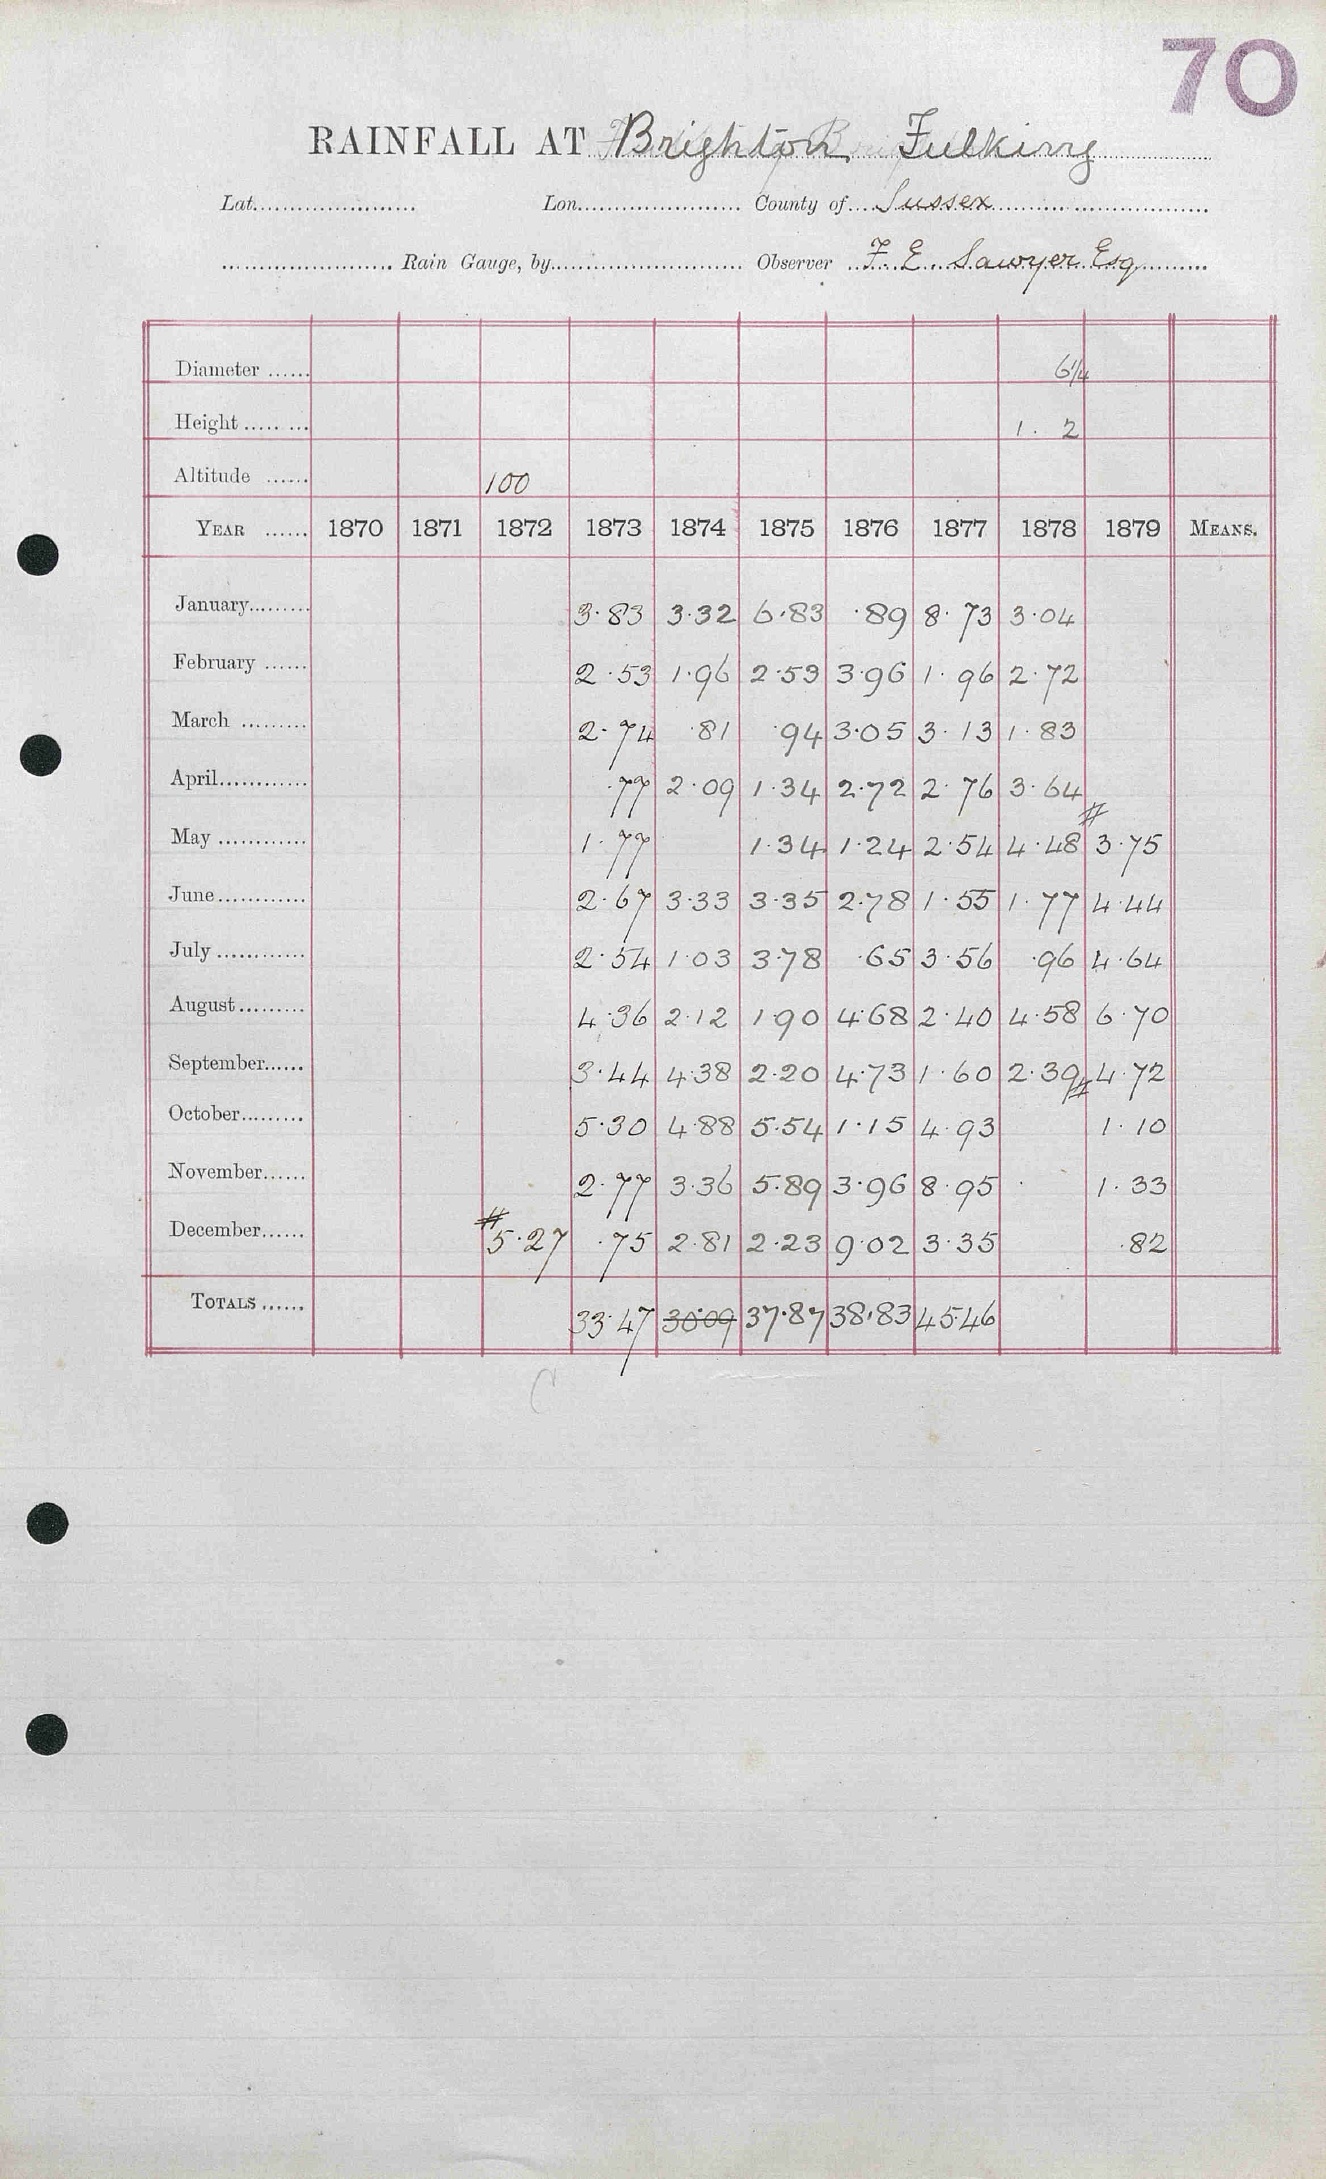 70
RAINFALL AT Brighton, Fulking
Lat...................... Lon...................... County of.... Sussex
...................... Rain Gauge, by...................... Observer F. E. Sawyer Esq
Diameter ...... 6 1/4
Height ........ 1. 2
Altitude ...... 100
YEAR ...... 1870 1871 1872 1873 1874 1875 1876 1877 1878 1879 MEANS.
January......... 3·83 3·32 6·83 ·89 8·73 3·04
February ...... 2·53 1·96 2·59 3·96 1·96 2·72
March ......... 2·74 ·81 ·94 3·05 3·13 1·83
April............ ·77 2·09 1·34 2·72 2·76 3·64
May ............ 1·77 1·34 1·24 2·54 4·48 # 3·75
June............ 2·67 3·33 3·35 2·78 1·55 1·77 4·44
July ............ 2·54 1·03 3·78 ·65 3·56 ·96 4·64
August......... 4·36 2·12 1·90 4·68 2·40 4·58 6·70
September...... 3·44 4·38 2·20 4·73 1·60 2·39 # 4·72
October......... 5·30 4·88 5·54 1·15 4·93 1·10
November...... 2·77 3·36 5·89 3·96 8·95 1·33
December...... # 5·27 ·75 2·81 2·23 9·02 3·35 ·82
TOTALS ...... 33·47 30·09 37·87 38·83 45·46